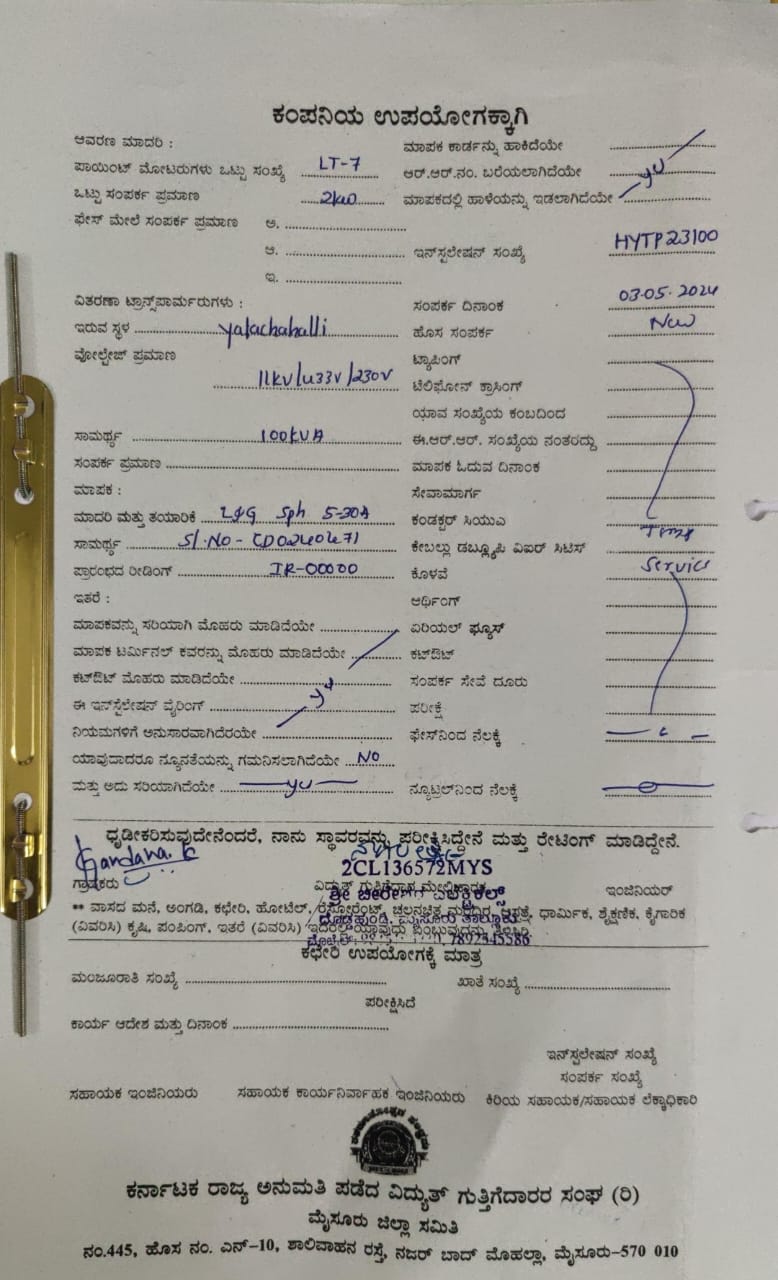 ಕಂಪನಿಯ ಉಪಯೋಗಕ್ಕಾಗಿ
ಆವರಣ ಮಾದರಿ :
ಪಾಯಿಂಟ್ ಮೋಟರುಗಳು ಒಟ್ಟು ಸಂಖ್ಯೆ LT-7
ಒಟ್ಟು ಸಂಪರ್ಕ ಪ್ರಮಾಣ 2kw
ಫೇಸ್ ಮೇಲೆ ಸಂಪರ್ಕ ಪ್ರಮಾಣ ಅ.
ಆ.
ಇ.
ವಿತರಣಾ ಟ್ರಾನ್ಸ್‌ಪಾರ್ಮರುಗಳು :
ಇರುವ ಸ್ಥಳ yalachahalli
ವೋಲ್ಟೇಜ್ ಪ್ರಮಾಣ
11kV/433V/230V
ಸಾಮರ್ಥ್ಯ 100kVA
ಸಂಪರ್ಕ ಪ್ರಮಾಣ
ಮಾಪಕ :
ಮಾದರಿ ಮತ್ತು ತಯಾರಿಕೆ L&G Sph 5-30A
ಸಾಮರ್ಥ್ಯ Sl.No-
ಪ್ರಾರಂಭದ ರೀಡಿಂಗ್ IR-00000
ಇತರೆ :
ಮಾಪಕವನ್ನು ಸರಿಯಾಗಿ ಮೊಹರು ಮಾಡಿದೆಯೇ
ಮಾಪಕ ಟರ್ಮಿನಲ್ ಕವರನ್ನು ಮೊಹರು ಮಾಡಿದೆಯೇ
ಕಟ್‌ಔಟ್ ಮೊಹರು ಮಾಡಿದೆಯೇ
ಈ ಇನ್‌ಸ್ಟೆಲೇಷನ್ ವೈರಿಂಗ್
ನಿಯಮಗಳಿಗೆ ಅನುಸಾರವಾಗಿದೆರಯೇ
ಯಾವುದಾದರೂ ನ್ಯೂನತೆಯನ್ನು ಗಮನಿಸಲಾಗಿದೆಯೇ NO
ಮತ್ತು ಅದು ಸರಿಯಾಗಿದೆಯೇ
ಮಾಪಕ ಕಾರ್ಡನ್ನು ಹಾಕಿದೆಯೇ
ಆರ್.ಆರ್.ನಂ. ಬರೆಯಲಾಗಿದೆಯೇ
ಮಾಪಕದಲ್ಲಿ ಹಾಳೆಯನ್ನು ಇಡಲಾಗಿದೆಯೇ
ಇನ್‌ಸ್ಟಲೇಷನ್ ಸಂಖ್ಯೆ HYTP23100
ಸಂಪರ್ಕ ದಿನಾಂಕ 03.05.2024
ಹೊಸ ಸಂಪರ್ಕ New
ಟ್ಯಾಪಿಂಗ್
ಟೆಲಿಫೋನ್ ಕ್ರಾಸಿಂಗ್
ಯಾವ ಸಂಖ್ಯೆಯ ಕಂಬದಿಂದ
ಈ.ಆರ್.ಆರ್. ಸಂಖ್ಯೆಯ ನಂತರದ್ದು
ಮಾಪಕ ಓದುವ ದಿನಾಂಕ
ಸೇವಾಮಾರ್ಗ
ಕಂಡಕ್ಟರ್ ಸಿಯುಎ
ಕೇಬಲ್ಲು ಡಬ್ಲ್ಯೂಪಿ ವಿಐರ್ ಸಿಟಿಸ್
ಕೊಳವೆ Service
ಅರ್ಥಿಂಗ್
ಏರಿಯಲ್ ಫ್ಯೂಸ್
ಕಟ್‌ಔಟ್
ಸಂಪರ್ಕ ಸೇವೆ ದೂರು
ಪರೀಕ್ಷೆ
ಫೇಸ್‌ನಿಂದ ನೆಲಕ್ಕೆ
ನ್ಯೂಟ್ರಲ್‌ನಿಂದ ನೆಲಕ್ಕೆ
ಧೃಡೀಕರಿಸುವುದೇನೆಂದರೆ, ನಾನು ಸ್ಥಾವರವನ್ನು ಪರೀಕ್ಷಿಸಿದ್ದೇನೆ ಮತ್ತು ರೇಟಿಂಗ್ ಮಾಡಿದ್ದೇನೆ.
2CL136572MYS
ಗ್ರಾಹಕರು ಇಂಜಿನಿಯರ್
** ವಾಸದ ಮನೆ, ಅಂಗಡಿ, ಕಛೇರಿ, ಹೋಟೆಲ್, ಧಾರ್ಮಿಕ, ಶೈಕ್ಷಣಿಕ, ಕೈಗಾರಿಕ
(ವಿವರಿಸಿ) ಕೃಷಿ, ಪಂಪಿಂಗ್, ಇತರೆ (ವಿವರಿಸಿ)
7892545586
ಕಛೇರಿ ಉಪಯೋಗಕ್ಕೆ ಮಾತ್ರ
ಮಂಜೂರಾತಿ ಸಂಖ್ಯೆ ಖಾತೆ ಸಂಖ್ಯೆ
ಪರೀಕ್ಷಿಸಿದೆ
ಕಾರ್ಯ ಆದೇಶ ಮತ್ತು ದಿನಾಂಕ
ಇನ್‌ಸ್ಟಲೇಷನ್ ಸಂಖ್ಯೆ
ಸಂಪರ್ಕ ಸಂಖ್ಯೆ
ಸಹಾಯಕ ಇಂಜಿನಿಯರು ಸಹಾಯಕ ಕಾರ್ಯನಿರ್ವಾಹಕ ಇಂಜಿನಿಯರು ಕಿರಿಯ ಸಹಾಯಕ/ಸಹಾಯಕ ಲೆಕ್ಕಾಧಿಕಾರಿ
ಕರ್ನಾಟಕ ರಾಜ್ಯ ಅನುಮತಿ ಪಡೆದ ವಿದ್ಯುತ್ ಗುತ್ತಿಗೆದಾರರ ಸಂಘ (ರಿ)
ಮೈಸೂರು ಜಿಲ್ಲಾ ಸಮಿತಿ
ನಂ.445, ಹೊಸ ನಂ. ಎನ್-10, ಶಾಲಿವಾಹನ ರಸ್ತೆ, ನಜರ್ ಬಾದ್ ಮೊಹಲ್ಲಾ, ಮೈಸೂರು-570 010